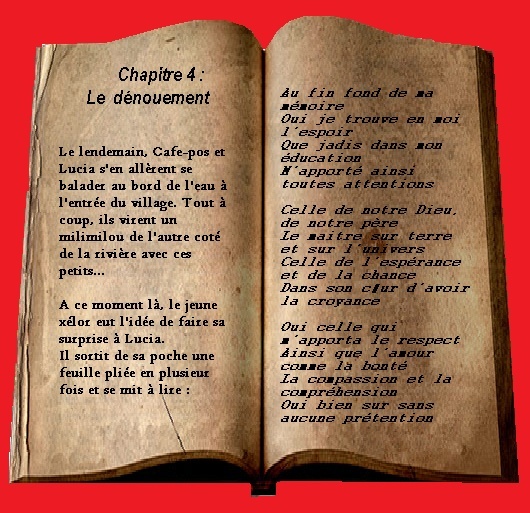 Chapitre 4 :
Le dénouement
Le lendemain, Cafe-pos et
Lucia s'en allèrent se
balader au bord de l'eau à
l'entrée du village. Tout à
coup, ils virent un
milimilou de l'autre coté
de la rivière avec ces
petits...
A ce moment là, le jeune
xélor eut l'idée de faire sa
surprise à Lucia.
Il sortit de sa poche une
feuille pliée en plusieur
fois et se mit à lire :
Au fin fond de ma
mémoire
Oui je trouve en moi
l'espoir
Que jadis dans mon
éducation
M'apporté ainsi
toutes attentions
Celle de notre Dieu,
de notre père
Le maitre sur terre
et sur l'univers
Celle de l'espérance
et de la chance
Dans son cœur d'avoir
la croyance
Oui celle qui
m'apporta le respect
Ainsi que l'amour
comme la bonté
La compassion et la
compréhension
Oui bien sur sans
aucune prétention